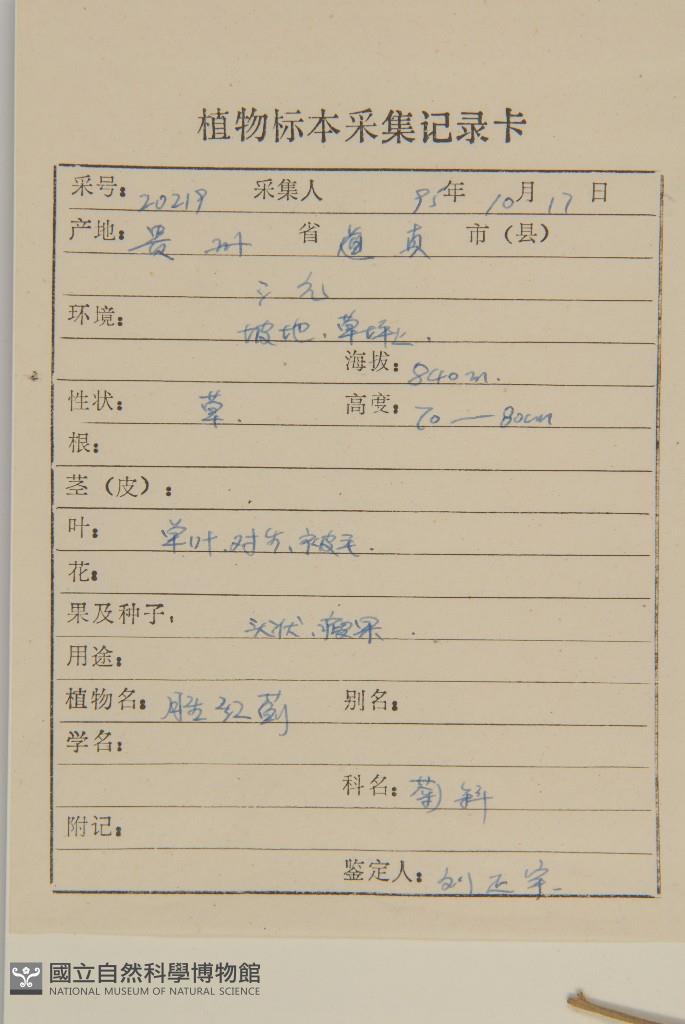 植物标本采集记录卡
采号: 20219 采集人 95年 10月 17日
产地: 贵州 省 道真 市(县)
三元
环境:
坡地、草坪上.
海拔: 840m.
性状: 草. 高度: 70—80cm
根:
茎(皮):
叶: 单叶、对生、被毛.
花:
果及种子: 头状、瘦果.
用途:
植物名: 胜红蓟 别名:
学名:
科名: 菊科
附记:
鉴定人: 刘正宇
國立自然科學博物館
NATIONAL MUSEUM OF NATURAL SCIENCE